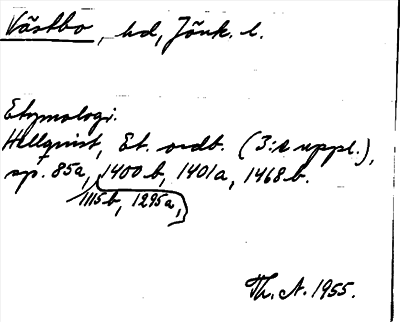 Västbo, hd, Jönk. l.
Etymologi.
Hellquist, Et. ordb. (3:e uppl.),
sp. 85a, 1400 b, 1401a, 1468 b.
1115 b, 1295a,
Th. A. 1955.